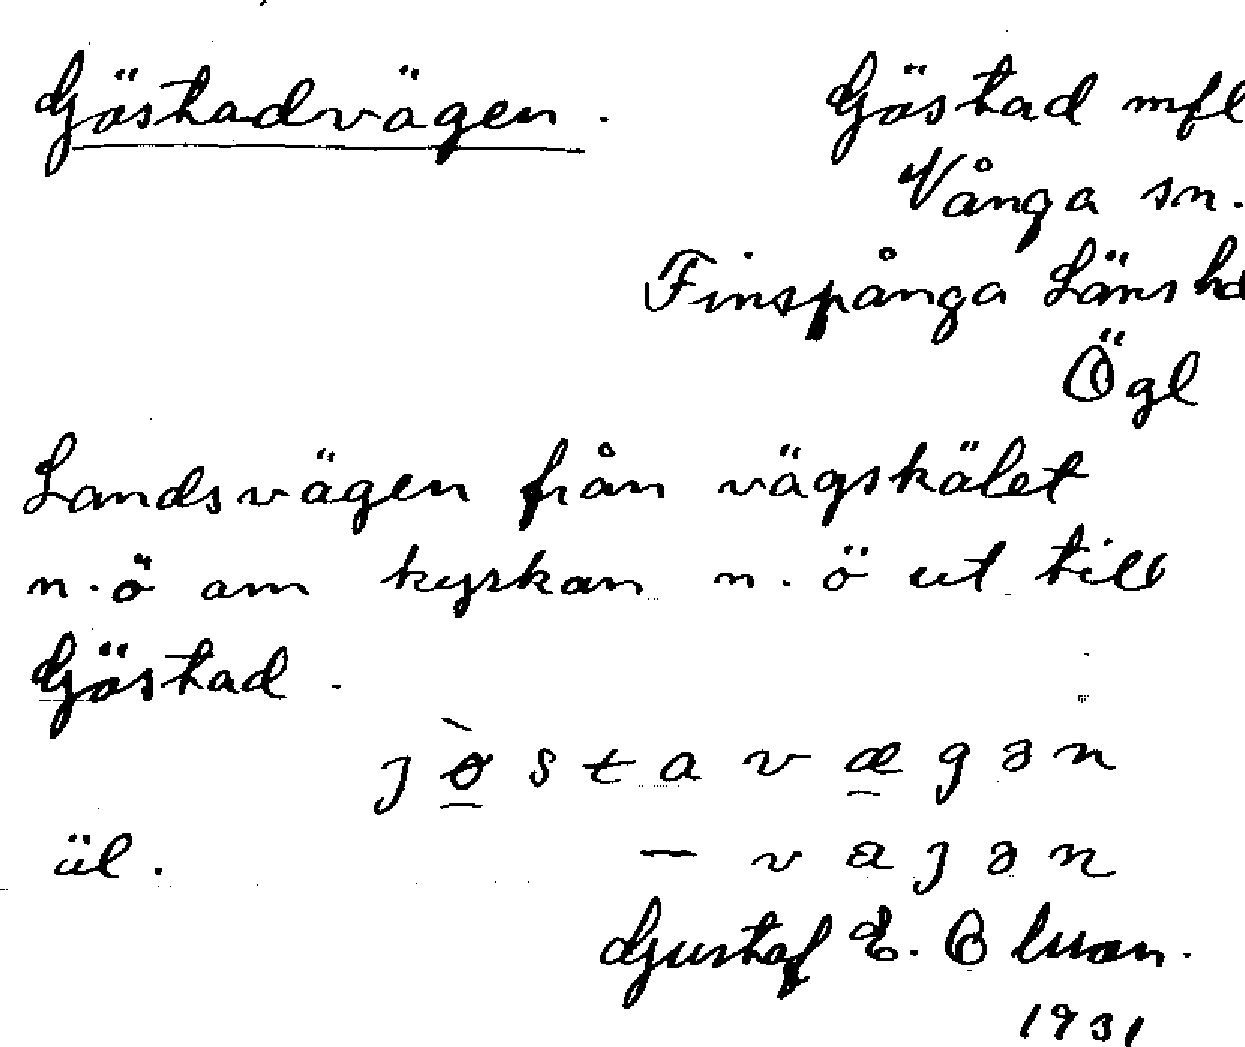 Göstadvägen.
Göstad mfl
Vånga sn.
Finspånga Länshd
Ögl
Landsvägen från vägskälet
n.ö om kyrkan n.ö ut till
Göstad.
jøstavægən
äl. — vajən
Gustaf E. Olson.
1931